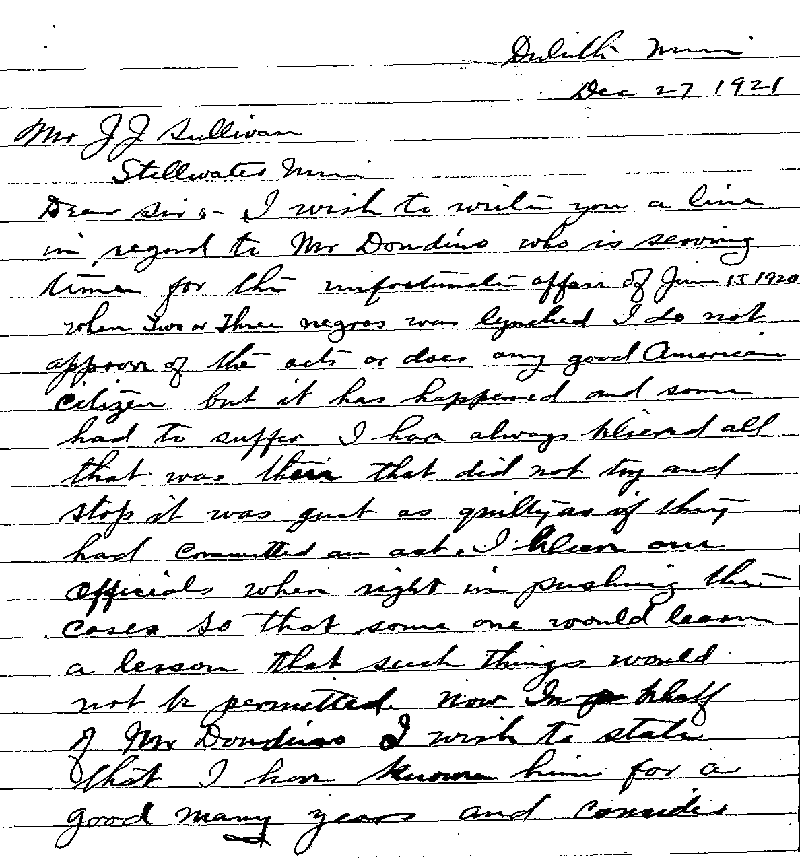 Duluth Minn
Dec 27 1921
Mr J J Sullivan
Stillwater Minn
Dear Sir:- I wish to write you a line
in regard to Mr Dondino who is serving
time for the unfortunate affair of June 15 1920
when Two or Three negros was lynched I do not
approve of the acts or does any good American
citizen but it has happened and some
had to suffer I have always blieved all
that was their that did not try and
stop it was just as guilty as if they
had committed an act. I blieve our
officials when right in pushing the
cases so that some one would learn
a lesson that such things would
not be permitted. now In bhalf
of Mr Dondino I wish to state
that I have known him for a
good many years and consider